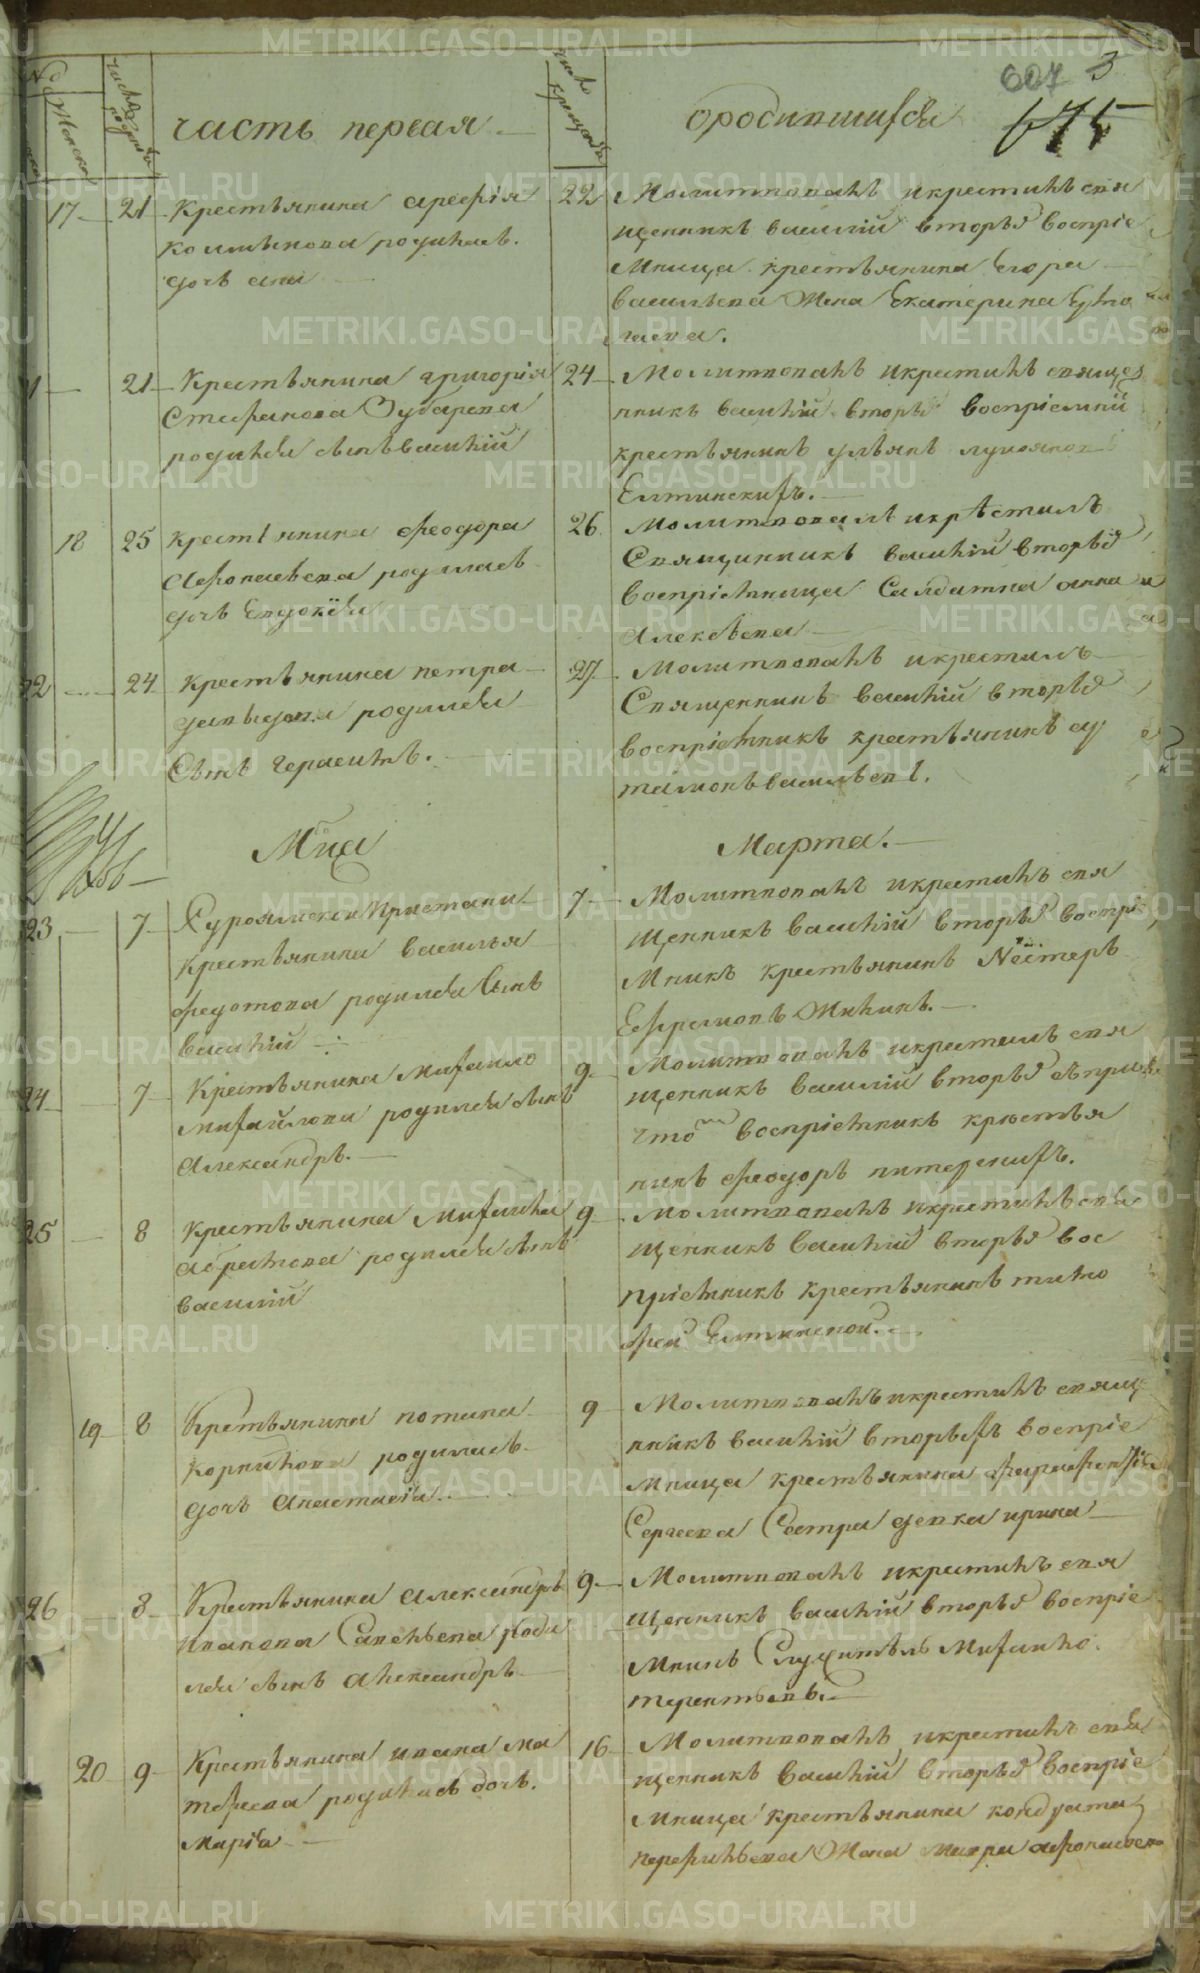 METRIKI.GASO-URAL.RU
607 3
675
№
Женска
часть первая
ородившихся
17 21 Крестьянина арефія
родилась
дочь анна
22 Молитвовалъ икрестилъ свя
щенникъ василій вторый воспріе
Мница крестьянина Егора
васильева Жена Екатерина
21 Крестьянина григорія
Стефанова Зубарева
родился сынъ василій
24 Молитвовалъ икрестилъ свяще
нникъ василій вторый воспріемни
крестьянинъ ульянъ
Елтинскихъ.
18 25 крестьянина феодора
Афонасьева родилась
дочь Евдокія
26 Молитвовалъ икрѣстилъ
Священникъ василій вторый
воспріемница Салдатка анна
Алексѣева
22 24 Крестьянина петра
давыдова родился
Сынъ Герасимъ.
27 Молитвовалъ икрестилъ
Священникъ василій вторый
воспріемникъ крестьянинъ ев
тамонъ васильевъ.
Мца
Марта.
23 7 Крестьянина василья
федотова родился Сынъ
василій
7 Молитвовалъ икрестилъ свя
щенникъ василій вторый воспріе
Мникъ крестьянинъ Нестеръ
Ефремовъ
24 7 Крестьянина Михаило
михайлова родился сынъ
Александръ.
9 Молитвовалъ икрестилъ свя
щенникъ василій вторый спричь
томъ воспріемникъ крестья
нинъ феодоръ питерскихъ.
25 8 Крестьянина Михаила
абрамова родился сынъ
василій
9 Молитвовалъ икрестилъ свя
щенникъ василій вторый вос
пріемникъ крестьянинъ тимо
фей Елтинской.
19 8 Крестьянина потапа
корнилова родилась
дочь Анастасія.
9 Молитвовалъ икрестилъ свящ
нникъ василій вторыхъ воспріе
мница крестьянина
Сергеева Сестра девка ирина
26 8 Крестьянина Александръ
иванова Савельева роди
лся сынъ александръ
9 Молитвовалъ икрестилъ свя
щенникъ василій вторый воспріе
мникъ Служитель Михаило
терентьевъ.
20 9 Крестьянина ивана ма
тфеева родилась дочь.
Марія
16 Молитвовалъ икрестилъ свя
щенникъ василій вторый воспріе
мница крестьянина кондрата
перфильева Жена мавра афонасьева